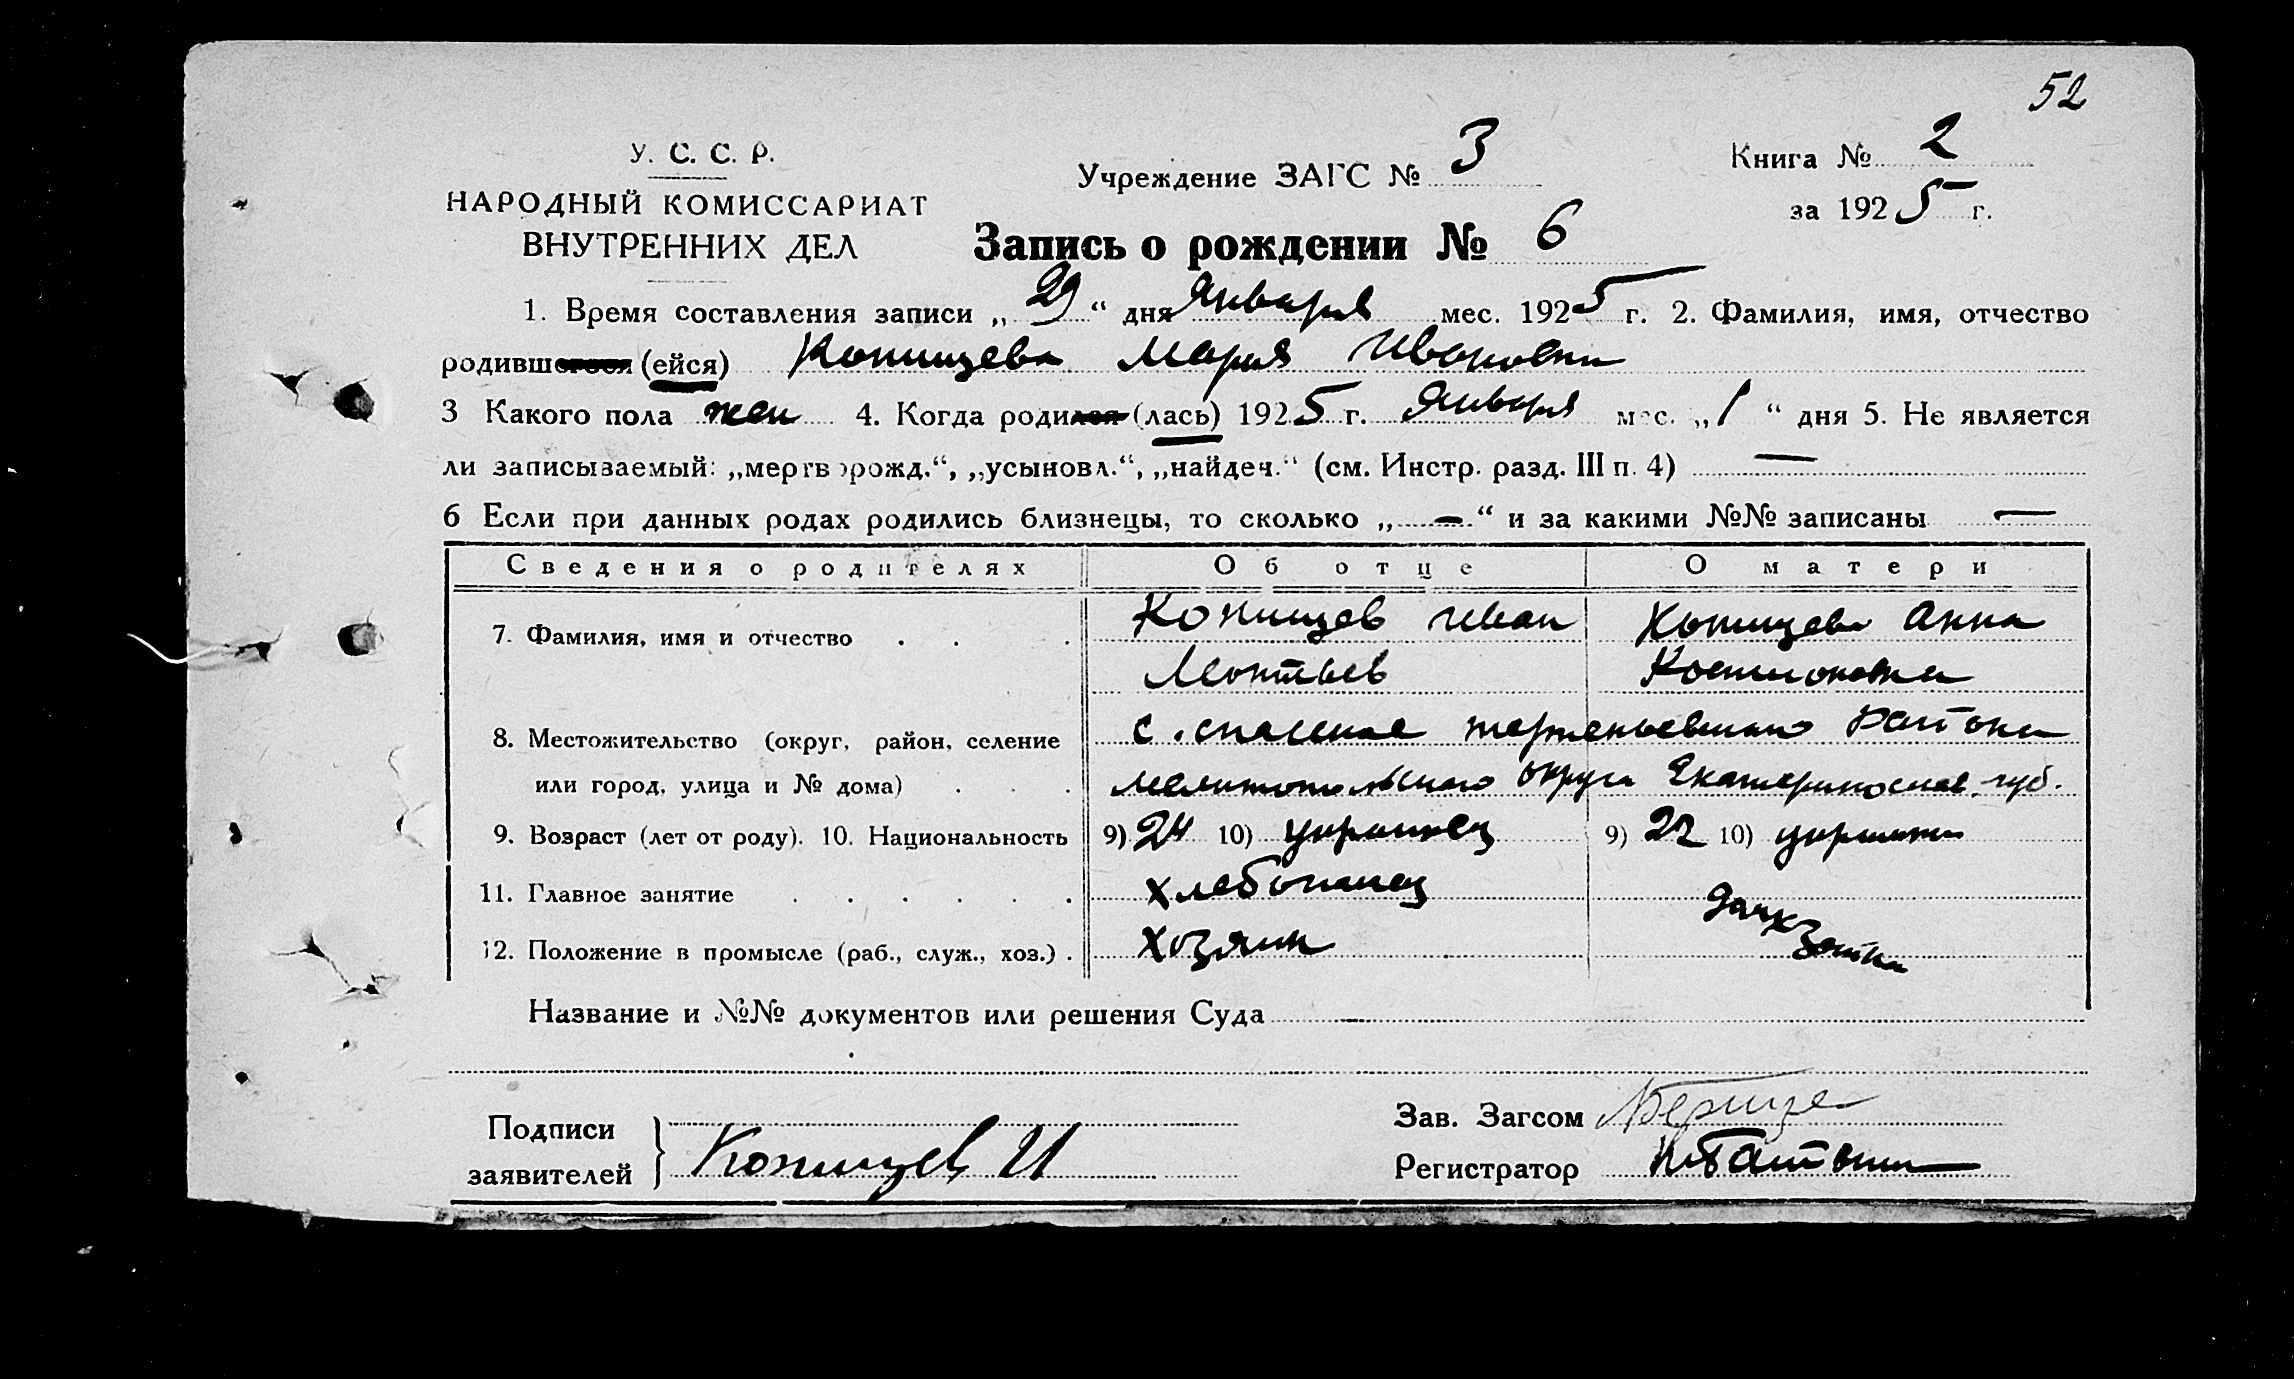 52
У. С. С. Р.
НАРОДНЫЙ КОМИССАРИАТ
ВНУТРЕННИХ ДЕЛ
Учреждение ЗАГС № 3
Книга № 2
за 1925 г.
Запись о рождении № 6
1. Время составления записи „29“ дня Января мес. 1925 г. 2. Фамилия, имя, отчество
родившегося (ейся) Копищева Мария Ивановна
3 Какого пола жен 4. Когда родился (лась) 1925 г. Января мес. „1“ дня 5. Не является
ли записываемый: „мертворожд.“, „усыновл.“, „найден.“ (см. Инстр. разд. III п. 4) —
6 Если при данных родах родились близнецы, то сколько „—“ и за какими №№ записаны —
Сведения о родителях Об отце О матери
7. Фамилия, имя и отчество Копищев Иван Копищева Анна
Леонтьев
8. Местожительство (округ, район, селение с. спасское района
или город, улица и № дома) мелитопольского округа Екатеринослав. губ.
9. Возраст (лет от роду). 10. Национальность 9) 24 10) украинец 9) 22 10) украинка
11. Главное занятие хлебопашец
12. Положение в промысле (раб., служ., хоз.) хозяин домхозяйка
Название и №№ документов или решения Суда —
Подписи
заявителей Копищев И
Зав. Загсом
Регистратор